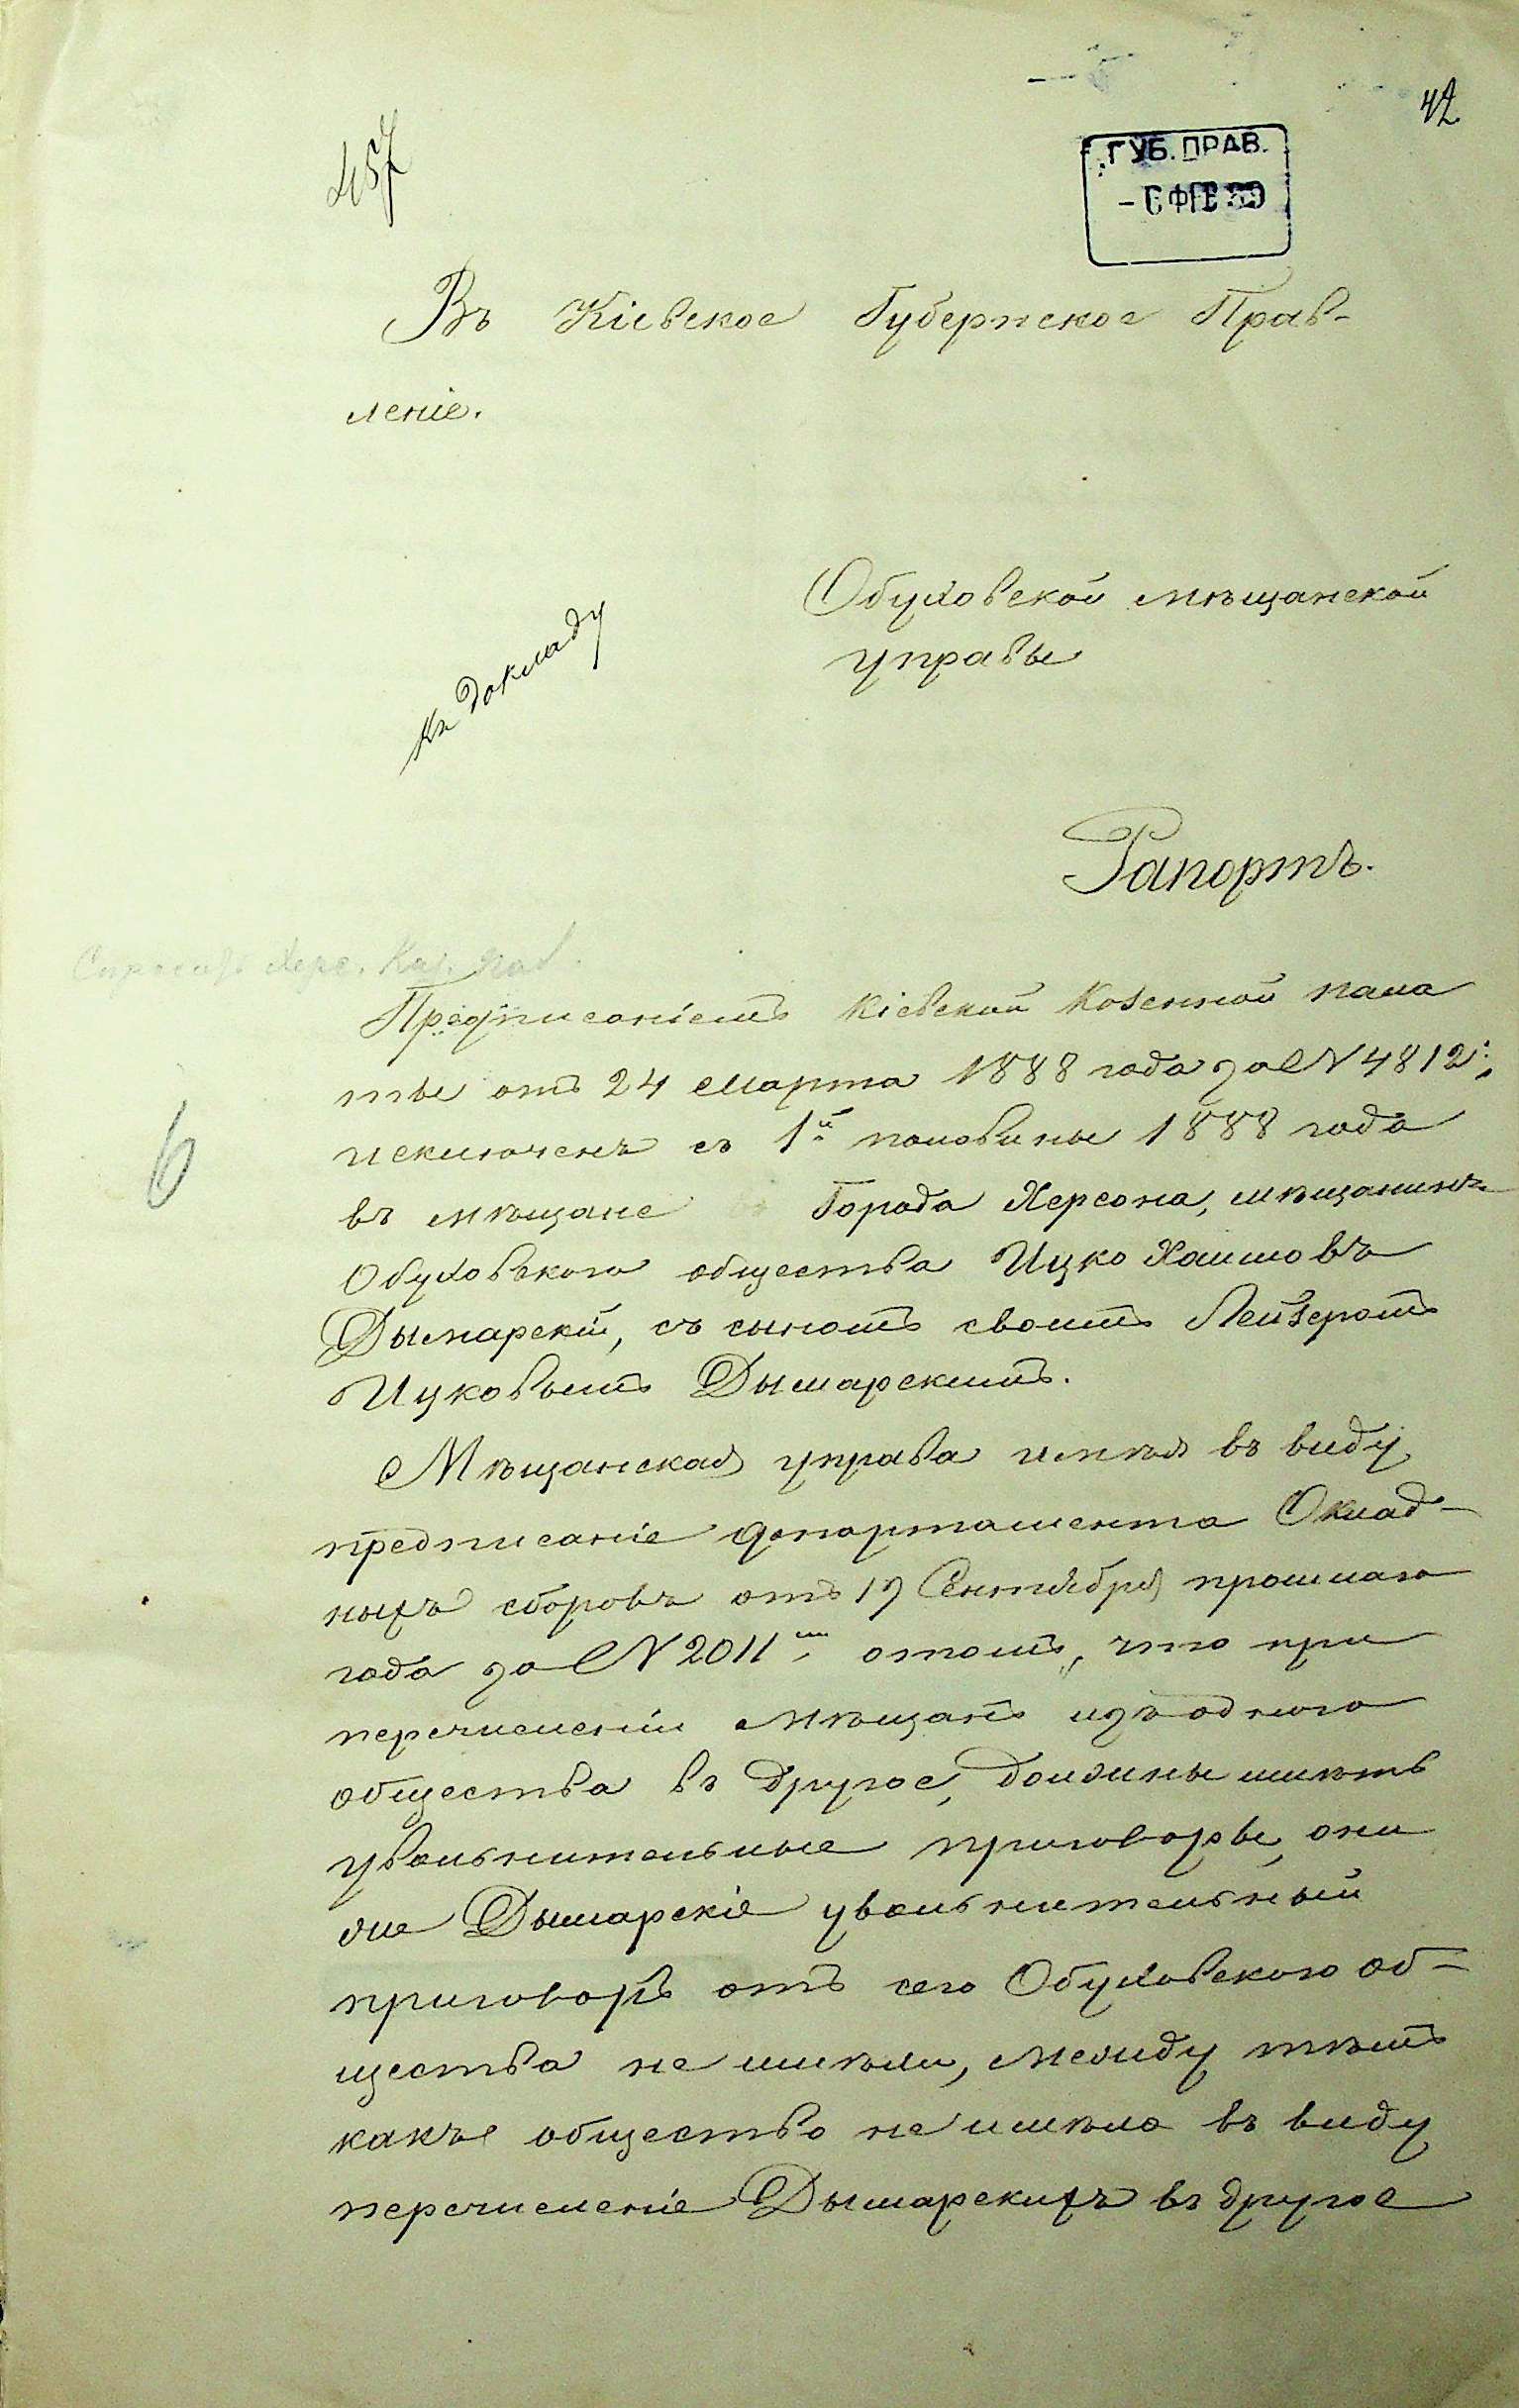 42
457
ГУБ. ПРАВ.
- 6 ФЕВ 89
Въ Кіевское Губернское Прав-
леніе.
Обуховской мѣщанской
управы
Къ докладу
Рапортъ.
Херс. Каз. Пал.
Предписаніемъ Кіевской Козенной пала
ты отъ 24 Марта 1888 года за № 4812;
исключенъ съ 1й половины 1888 года
въ мѣщане Города Херсона, мѣщанинъ
Обуховского общества Ицко Хаимовъ
Дымарскій, съ сыномъ своимъ Лейзеромъ
Ицковымъ Дымарскимъ.
6
Мѣщанская управа имѣя въ виду
предписаніе департамента Оклад-
ныхъ сборовъ отъ 19 Сентября прошлаго
года за № 2011мъ отомъ, что при
перечисленіи Мѣщанъ изъ одного
общества въ другое, должны имѣть
увольнительные приговоры, они
же Дымарскіе увольнительный
приговоръ отъ сего Обуховского об-
щества не имѣли, между тѣмъ
какъ общество не имѣло въ виду
перечисленіе Дымарскихъ въ другое